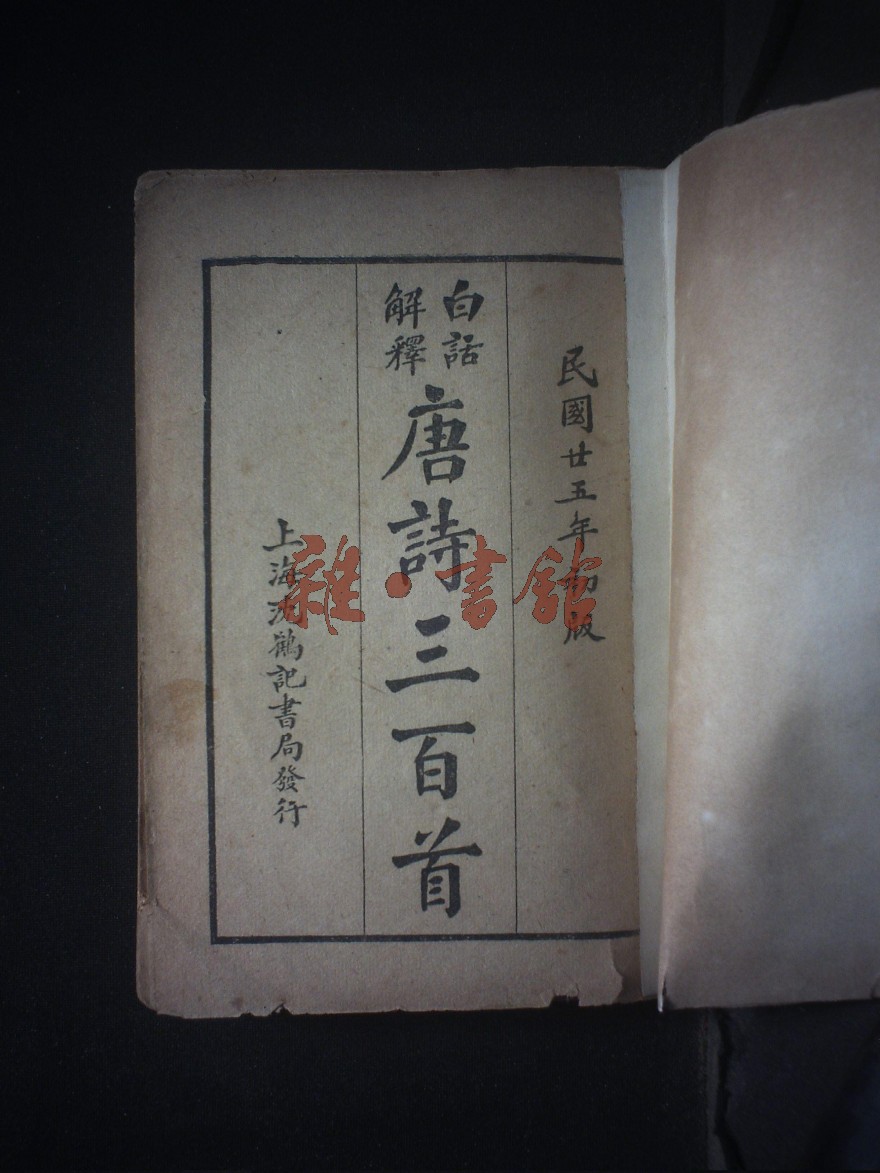 民國廿五年初版
白話
解釋
唐詩三百首
上海沈鶴記書局發行
雜·書館